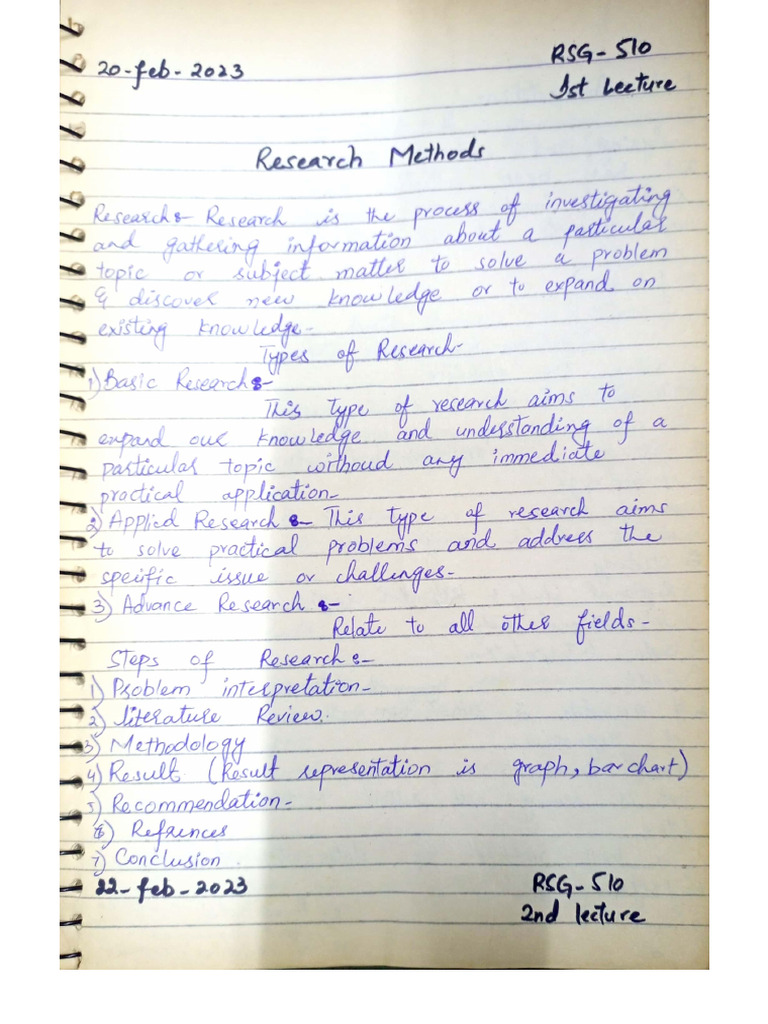 20-feb-2023
RSG-510
1st Lecture
Research Methods
Research:- Research is the process of investigating
and gathering information about a particular
topic or subject matter to solve a problem
& discover new knowledge or to expand on
existing knowledge-
Types of Research-
1) Basic Research:-
This type of research aims to
expand our knowledge and understanding of a
particular topic withoud any immediate
practical application-
2) Applied Research :- This type of research aims
to solve practical problems and address the
specific issue or challenges-
3) Advance Research :-
Relate to all other fields-
Steps of Research:-
1) Problem interpretation-
2) literature Review.
3) Methodology
4) Result. (Result representation is graph, bar chart)
5) Recommendation-
6) Refrences
7) Conclusion.
22-feb-2023
RSG-510
2nd lecture